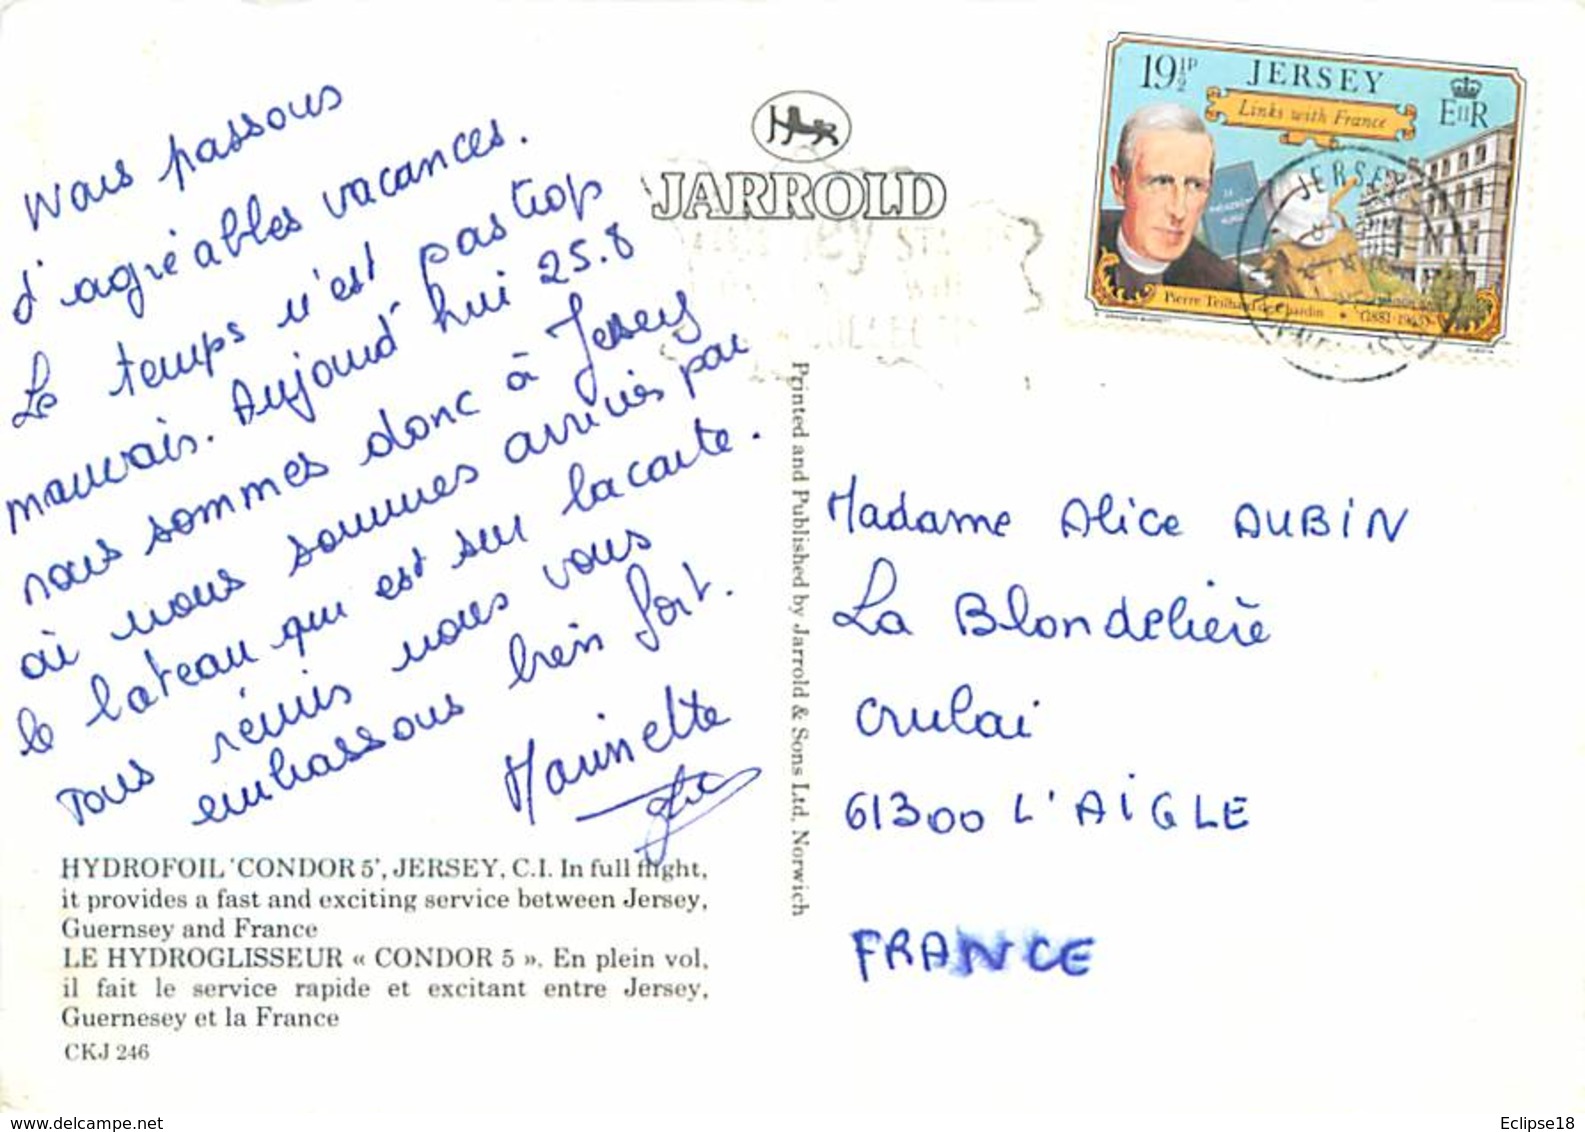 Nous passons
d'agréables vacances.
Le temps n'est pas trop
mauvais. Aujourd'hui 25.8
nous sommes donc à Jersey
où nous sommes arrivés par
le bateau qui est sur la carte.
Tous réunis nous vous
embrassons bien fort.
Marinette
HYDROFOIL 'CONDOR 5', JERSEY, C.I. In full flight,
it provides a fast and exciting service between Jersey,
Guernsey and France
LE HYDROGLISSEUR « CONDOR 5 ». En plein vol,
il fait le service rapide et excitant entre Jersey,
Guernesey et la France
CKJ 246
JARROLD
Printed and Published by Jarrold & Sons Ltd, Norwich
19½P
JERSEY
EIIR
Links with France
Pierre Teilhard de Chardin
JERSEY
Madame Alice AUBIN
La Blondelière
Crulai
61300 L'AIGLE
FRANCE
www.delcampe.net
Eclipse18